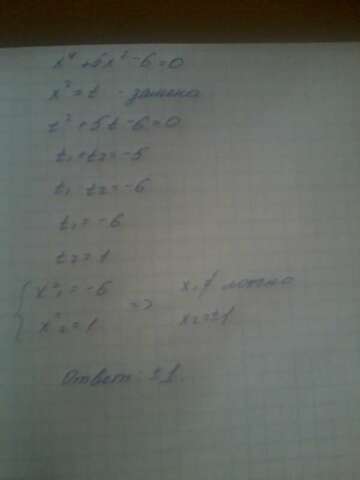 x⁴+5x²-6=0
x²=t - замена
t²+5t-6=0
t₁+t₂=-5
t₁ t₂=-6
t₁=-6
t₂=1
{ x²₁=-6 => x₁ ≠ ложно
x²₂=1 x₂=±1
Ответ: ±1.